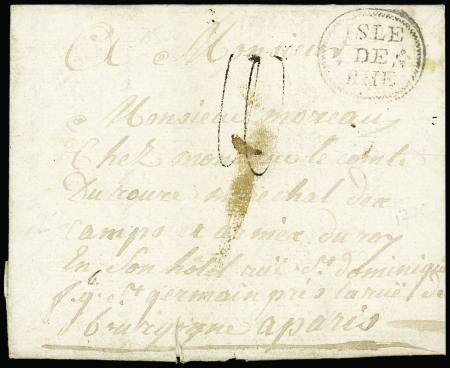 ISLE
DE
RHE
A Monsieur
Monsieur moreau
Chez monsieur le comte
Du roure marechal des
camps et armées du roy
En Son hôtel ruë St. dominique
f. g. St. germain près la ruë de
bourgogne a paris